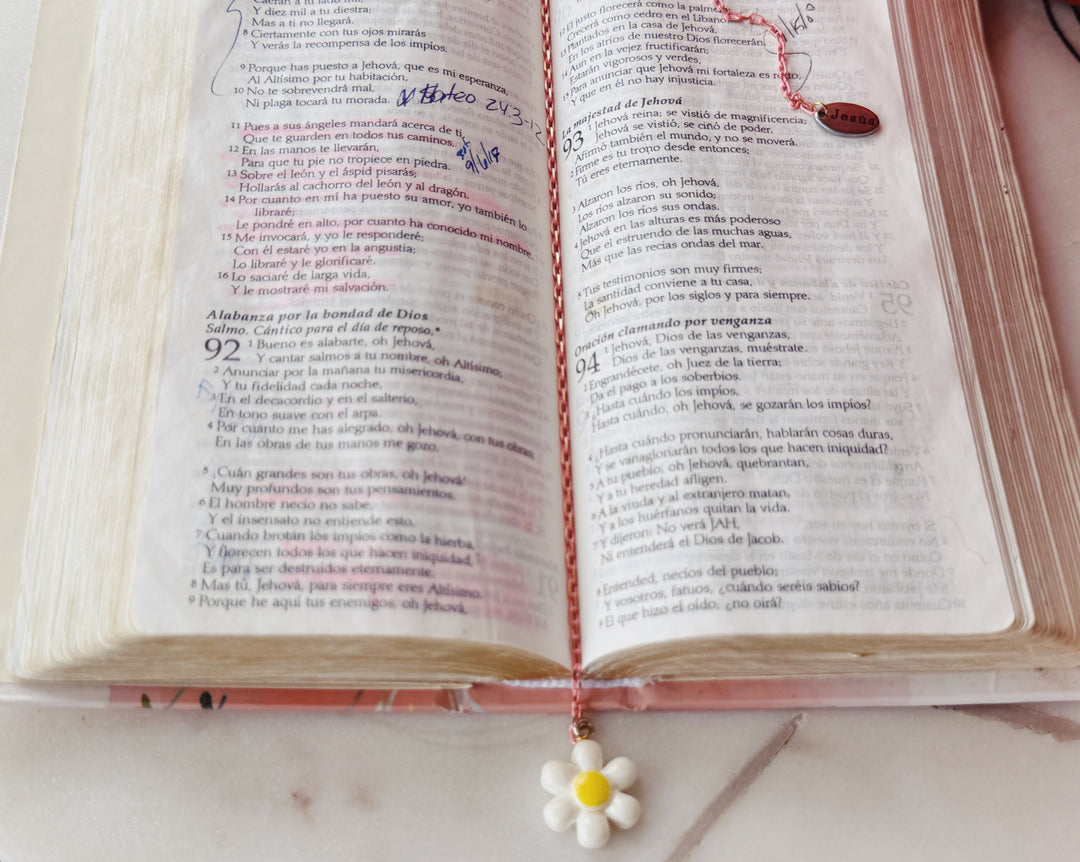 Caerán a tu lado mil,
Y diez mil a tu diestra;
Mas a ti no llegará.
8 Ciertamente con tus ojos mirarás
Y verás la recompensa de los impíos.
9 Porque has puesto a Jehová, que es mi esperanza,
Al Altísimo por tu habitación,
10 No te sobrevendrá mal,
Ni plaga tocará tu morada.
Mateo 24:3-12
11 Pues a sus ángeles mandará acerca de ti,
Que te guarden en todos tus caminos.
12 En las manos te llevarán,
Para que tu pie no tropiece en piedra.
9/6/17
13 Sobre el león y el áspid pisarás;
Hollarás al cachorro del león y al dragón.
14 Por cuanto en mí ha puesto su amor, yo también lo
libraré;
Le pondré en alto, por cuanto ha conocido mi nombre.
15 Me invocará, y yo le responderé;
Con él estaré yo en la angustia;
Lo libraré y le glorificaré.
16 Lo saciaré de larga vida,
Y le mostraré mi salvación.
Alabanza por la bondad de Dios
Salmo. Cántico para el día de reposo.*
92 1 Bueno es alabarte, oh Jehová,
Y cantar salmos a tu nombre, oh Altísimo;
2 Anunciar por la mañana tu misericordia,
Y tu fidelidad cada noche,
3 En el decacordio y en el salterio,
En tono suave con el arpa.
4 Por cuanto me has alegrado, oh Jehová, con tus obras;
En las obras de tus manos me gozo.
5 ¡Cuán grandes son tus obras, oh Jehová!
Muy profundos son tus pensamientos.
6 El hombre necio no sabe,
Y el insensato no entiende esto.
7 Cuando brotan los impíos como la hierba,
Y florecen todos los que hacen iniquidad,
Es para ser destruidos eternamente.
8 Mas tú, Jehová, para siempre eres Altísimo.
9 Porque he aquí tus enemigos, oh Jehová,
12 El justo florecerá como la palmera;
Crecerá como cedro en el Líbano.
13 Plantados en la casa de Jehová,
En los atrios de nuestro Dios florecerán.
14 Aun en la vejez fructificarán;
Estarán vigorosos y verdes,
15 Para anunciar que Jehová mi fortaleza es recto,
Y que en él no hay injusticia.
Jesús
La majestad de Jehová
93 1 Jehová reina; se vistió de magnificencia;
Jehová se vistió, se ciñó de poder.
Afirmó también el mundo, y no se moverá.
2 Firme es tu trono desde entonces;
Tú eres eternamente.
3 Alzaron los ríos, oh Jehová,
Los ríos alzaron su sonido;
Alzaron los ríos sus ondas.
4 Jehová en las alturas es más poderoso
Que el estruendo de las muchas aguas,
Más que las recias ondas del mar.
5 Tus testimonios son muy firmes;
La santidad conviene a tu casa,
Oh Jehová, por los siglos y para siempre.
Oración clamando por venganza
94 1 Jehová, Dios de las venganzas,
Dios de las venganzas, muéstrate.
2 Engrandécete, oh Juez de la tierra;
Da el pago a los soberbios.
3 ¿Hasta cuándo los impíos,
Hasta cuándo, oh Jehová, se gozarán los impíos?
4 ¿Hasta cuándo pronunciarán, hablarán cosas duras,
Y se vanagloriarán todos los que hacen iniquidad?
5 A tu pueblo, oh Jehová, quebrantan,
Y a tu heredad afligen.
6 A la viuda y al extranjero matan,
Y a los huérfanos quitan la vida.
7 Y dijeron: No verá JAH,
Ni entenderá el Dios de Jacob.
8 Entended, necios del pueblo;
Y vosotros, fatuos, ¿cuándo seréis sabios?
9 El que hizo el oído, ¿no oirá?